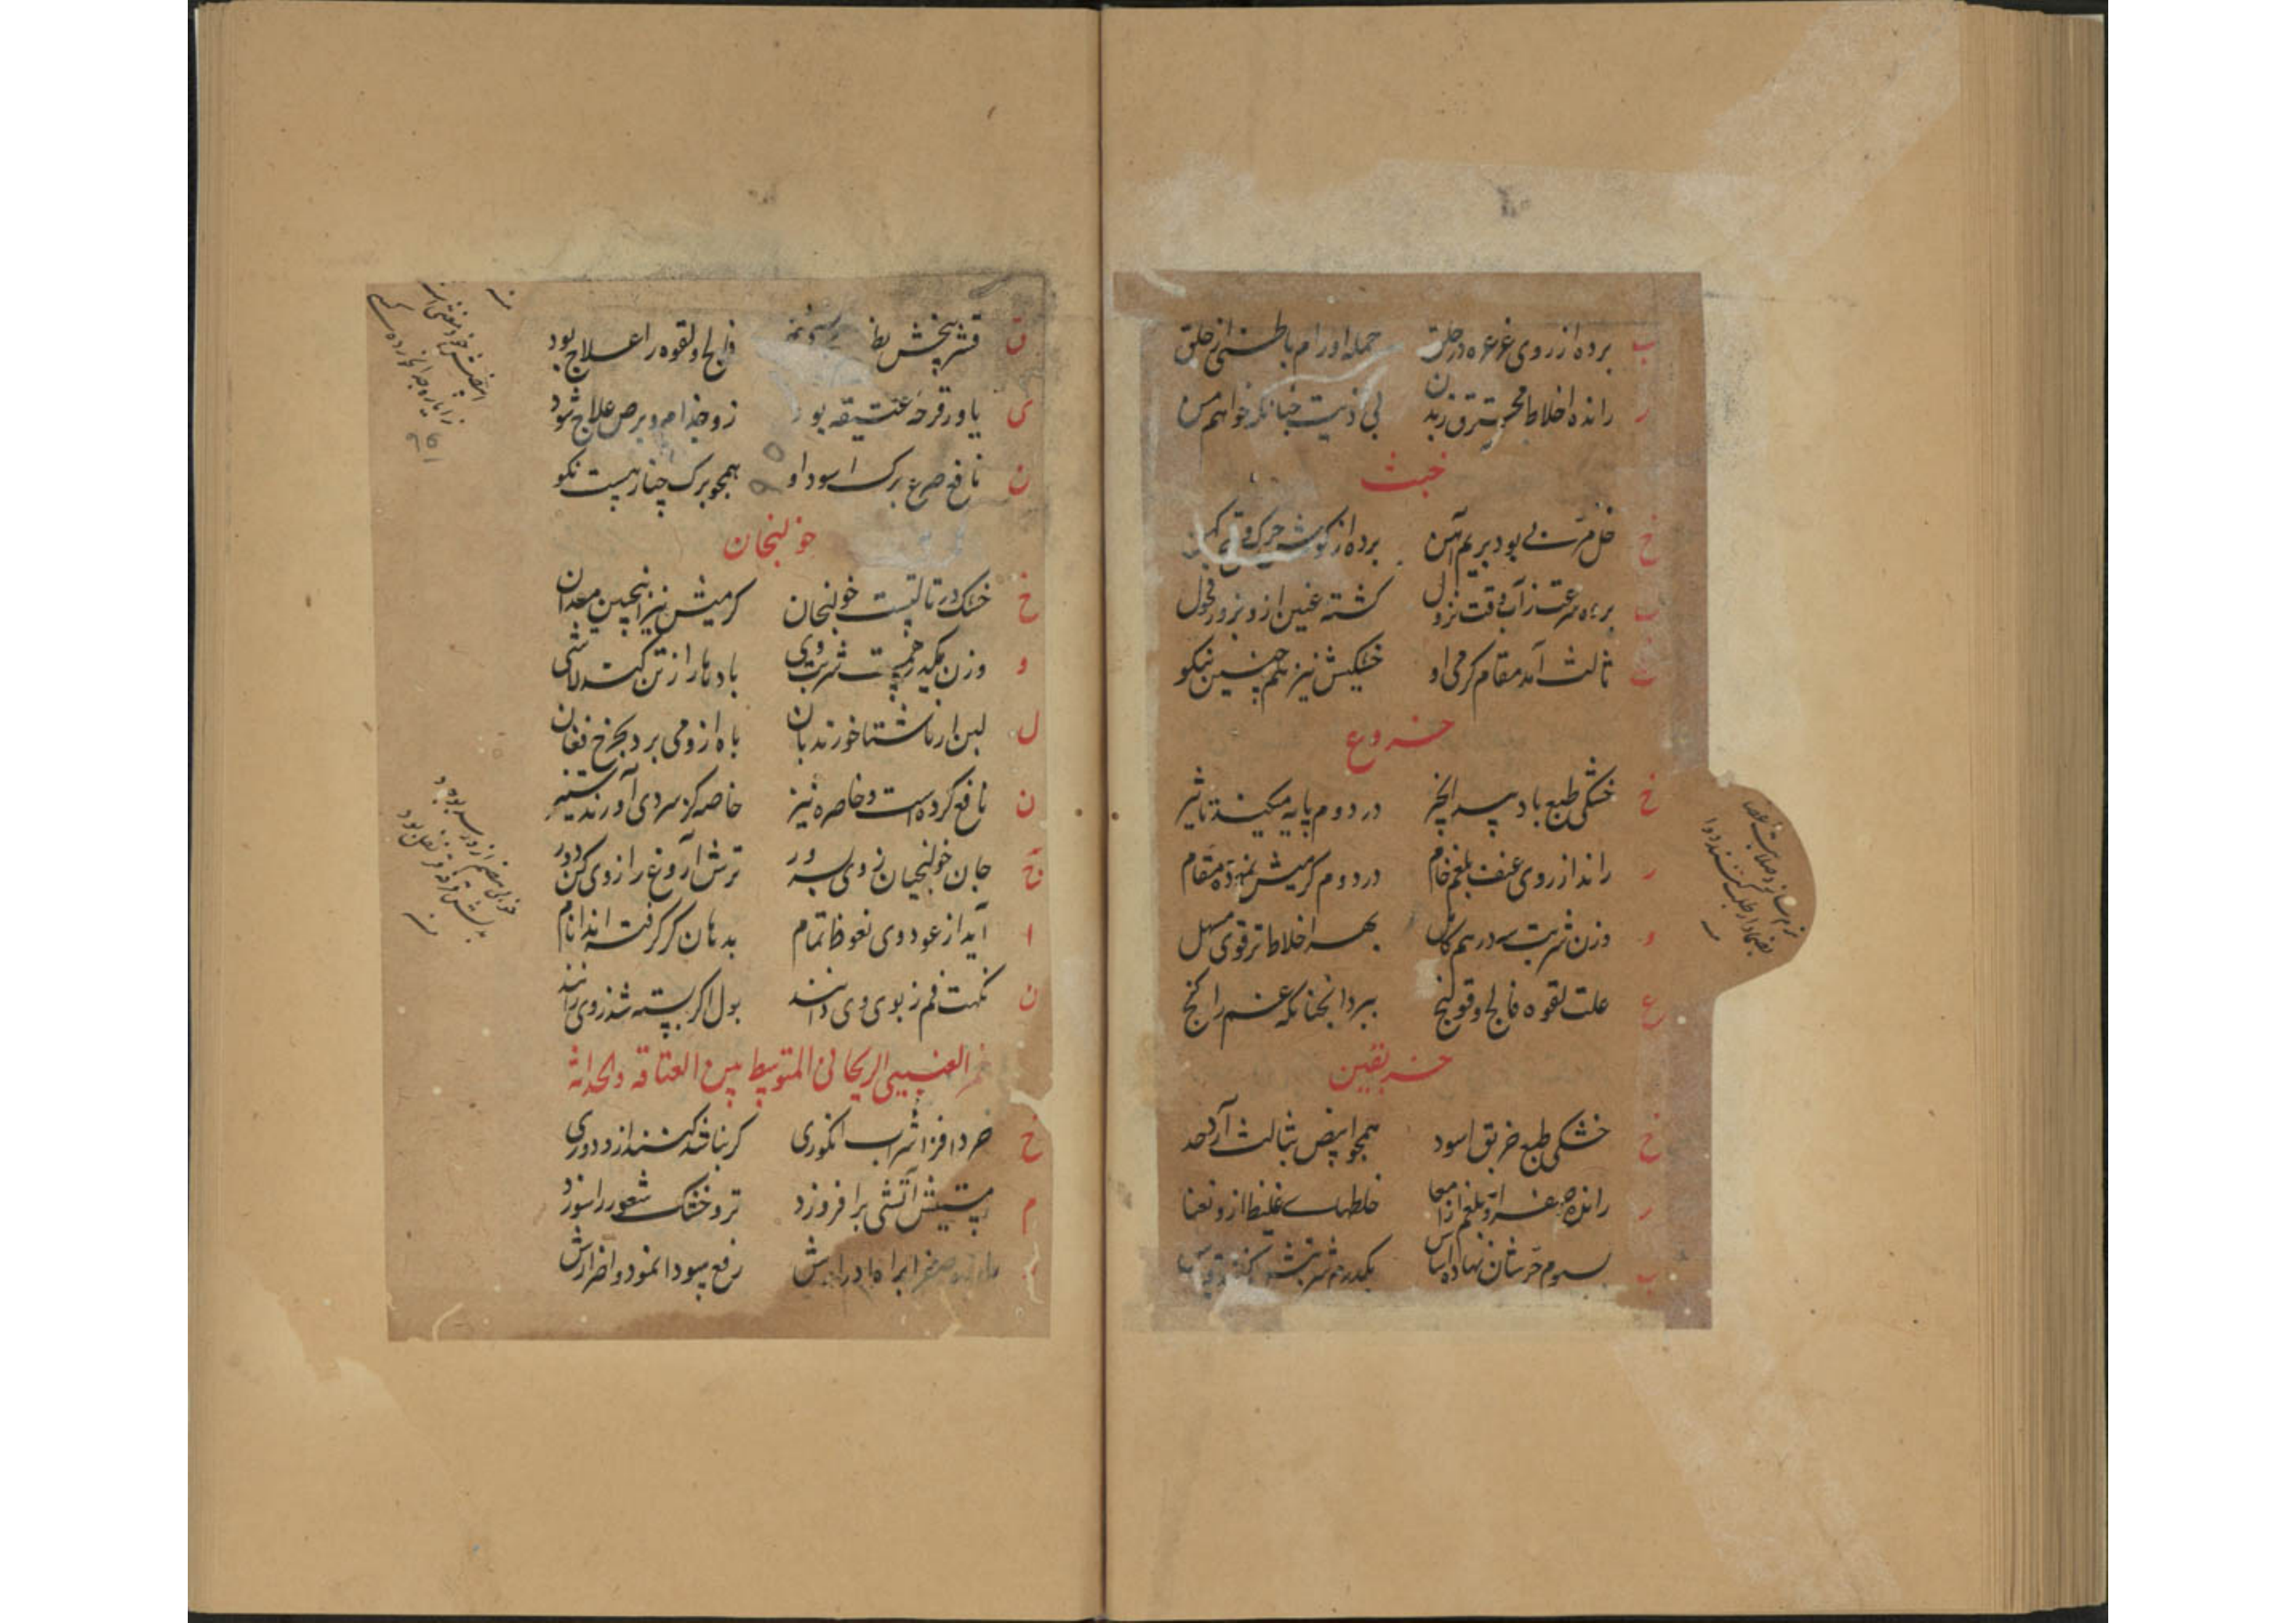 ب برده از روی غرغره در حلق جمله اورام باطنی از حلق
ر رانده اخلاط محترق ز بدن بی اذیت چنانکه خواهم من
خبث
خ خل مر بود بریم آهن برده از گوش چرک
ب برده سرعت ز آب وقت نزول گشته عنین ازو بزور فحول
ث ثالث آمد مقام گرمی او خشکیش نیز هم چنین نیکو
خروع
خ خشکی طبع باد پیر انجیر در دوم پایه میکند تاثیر
ر راند از روی عنف بلغم خام در دوم گرمیش نموده مقام
و وزن شربت سه درهم کامل بهر اخلاط تر قوی مسهل
ع علت لقوه فالج و قولنج ببرد آنچنانکه غم را گنج
خربقین
خ خشکی طبع خربق اسود همچو ابیض بثالث آرد حد
ر رانده صفرا و بلغم از امعا خلطهای غلیظ ازو نعما
ب سوم حرشان نهاده اساس یکدرم شربتش
نرم سازد صلابت اعضا
بضماد ار طلب کنند دوا
ق قشر بیخش فالج و لقوه را علاج بود
ی یاور قرحه عتیقه بود زو جذام و برص علاج شود
ن نافع صرع برگ اسود او همچو برگ چنار هست نکو
خولنجان
خ خشک در ثالثست خولنجان گرمیش نیز اینچنین میدان
و وزن یکدرهمست شربت وی بادها را ز تن کند لاشی
ل لبن ار ناشتا خورند بآن باه ازو می برد بچرخ فغان
ن نافع گرده است و خاصره نیز خاصه کز سردی آورند ستیز
ج جان خولنجان ز روی سرور ترش آروغ را ز وی کن دور
ا آید از عود وی نعوظ تمام بدهان گر گرفته اند انام
ن نکهت فم ز بوی وی دانند بول اگر بسته شد ز وی رانند
خمر العنبی الریحانی المتوسط بین العتاقه والحداثه
خ خرد افزا شراب انگوری گر نباشد کشند ازو دوری
م مستیش آتشی برافروزد تر و خشک شعور را سوزد
صفرا براه ادرارش رفع سودا نمود و اضرارش